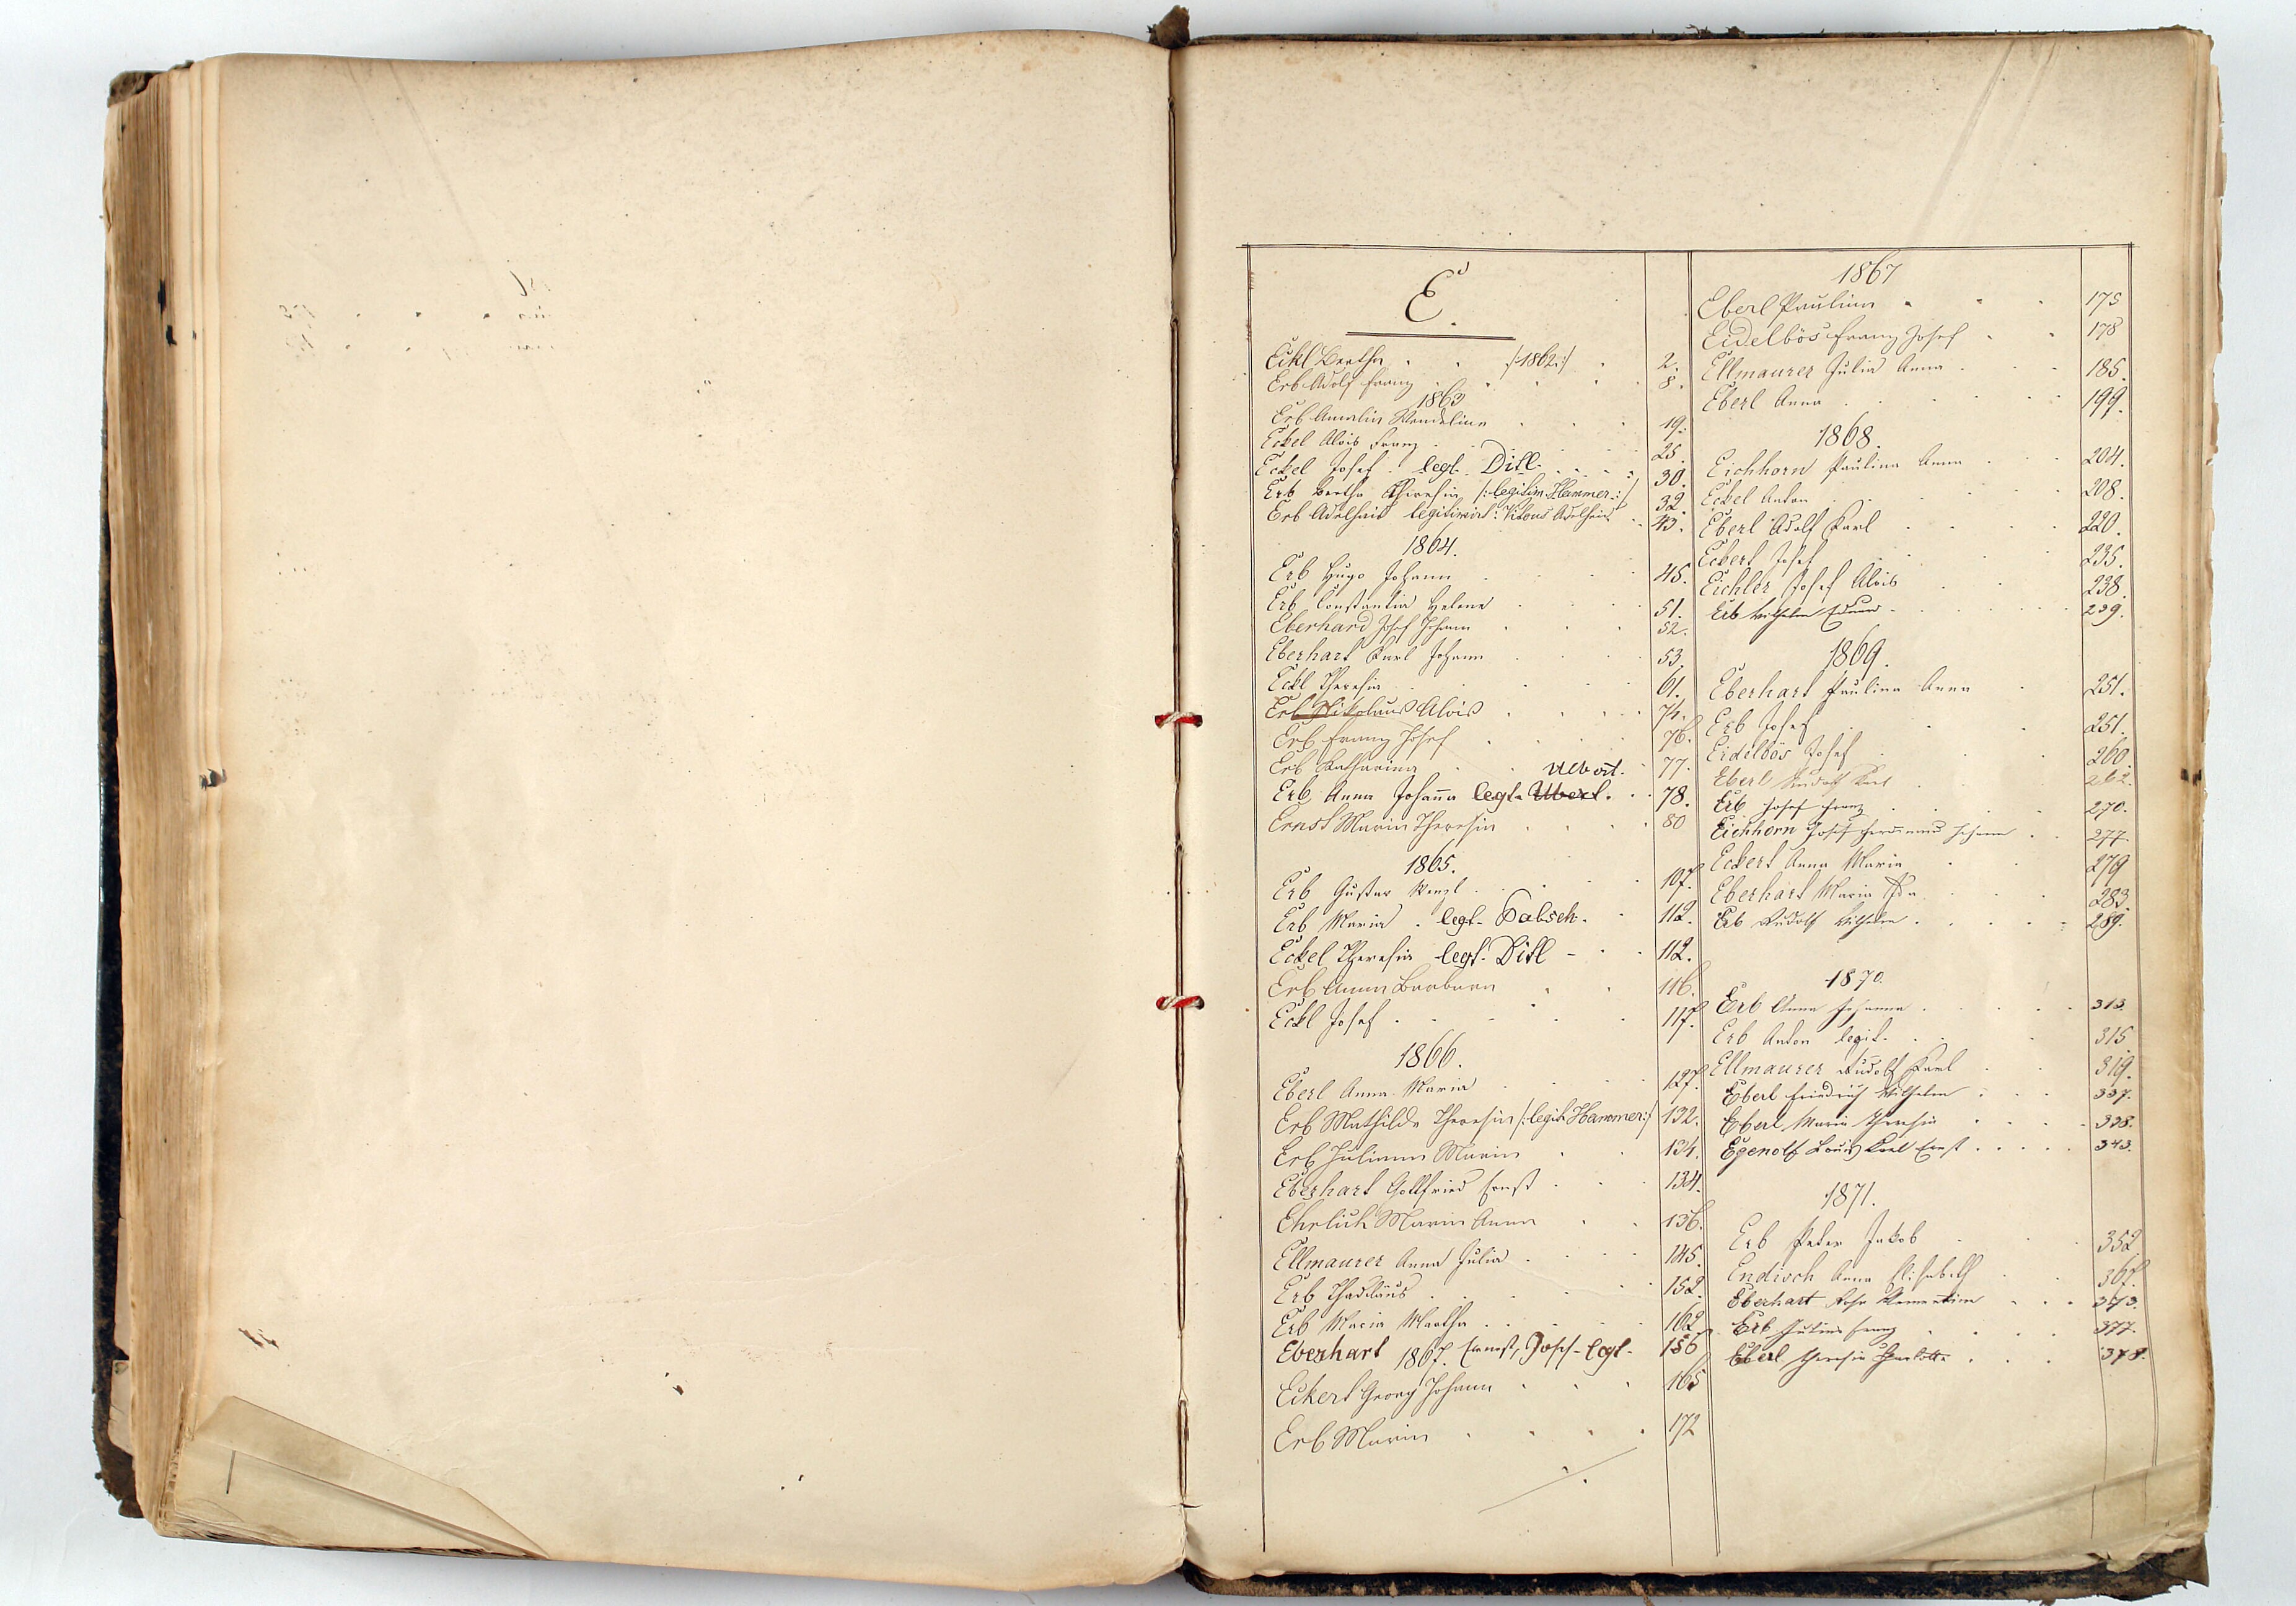 E.
Eckl Bertha /:1862:/ 2.
Erb Adolf Franz 8.
1863
Erb Amalia Wendeline 19.
Eckel Alois Franz 25.
Eckel Josef legt. Ditl. 30.
Erb Bertha Theresia /:legitim. Hammer:/ 32.
Erb Adelheid legitimirt: Adelheid 43.
1864.
Erb Hugo Johann 45.
Erb Constantia Helene 51.
Eberhard Josef Johann 52.
Eberhart Karl Johann 53.
Eckl Theresia 61.
Erb Nikolaus Alois 74.
Erb Franz Josef 76.
Erb Katharina 77.
Erb Anna Johanna legt. 78.
Ernst Maria Theresia 80
1865.
Erb Gustav Wenzl 107.
Erb Maria legt. 112.
Eckel Theresia legt. Ditl 112.
Erb Anna Barbara 116.
Eckl Josef 117.
1866.
Eberl Anna Maria 127.
Erb Mathilde Theresia /:legit. Hammer:/ 132.
Erb Juliana Maria 134.
Eberhart Gottfried Ernst 134.
Ehrlich Maria Anna 136.
Ellmaurer Anna Julia 145.
Erb Thadäus 152.
Erb Maria Martha 162
Eberhart Ernest, Josef legt. 156
1867.
Eckert Georg Johann 165
Erb Maria 172
1867
Eberl Paulina 175
Eidelbös Franz Josef 178
Ellmaurer Julia Anna 185.
Eberl Anna 199.
1868.
Eichhorn Paulina Anna 204.
Eckel Anton 208.
Eberl Adolf Karl 220.
Eckert Josef 235.
Eichler Josef Alois 238.
Erb Wilhelm Eduard 239.
1869.
Eberhart Paulina Anna 251.
Erb Josef 251.
Eidelbös Josef 260.
Eberl Rudolf Karl 262.
Erb Josef Franz 270.
Eichhorn Josef Ferdinand Johann 277.
Eckert Anna Maria 279
Eberhart Maria Ida 283.
Erb Rudolf Wilhelm 289.
1870.
Erb Anna Johanna 313.
Erb Anton legit. 315.
Ellmaurer Rudolf Karl 319.
Eberl Friedrich Wilhelm 337.
Eberl Maria Theresia 338.
Egenolf Louis Karl Ernst 343.
1871.
Erb Peter Jakob 352
Endisch Anna Elisabeth 367.
Eberhart Rosa Clementine 373.
Erb Julius Franz 377.
Eberl Theresia Charlotte 378.